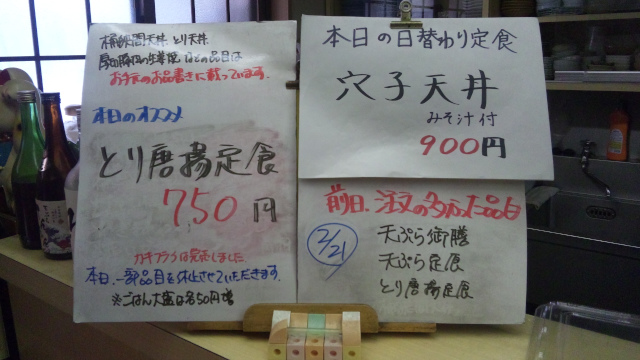 天丼、とり天丼
生姜焼などの品目は
お手元のお品書きに載っています。
本日のオススメ
とり唐揚定食
750円
カキフライは完売しました
本日、一部品目を休止させていただきます。
※ごはん大盛は各50円増
本日の日替わり定食
穴子天丼
みそ汁付
900円
前日、注文の多かった品目
2/21
天ぷら御膳
天ぷら定食
とり唐揚定食